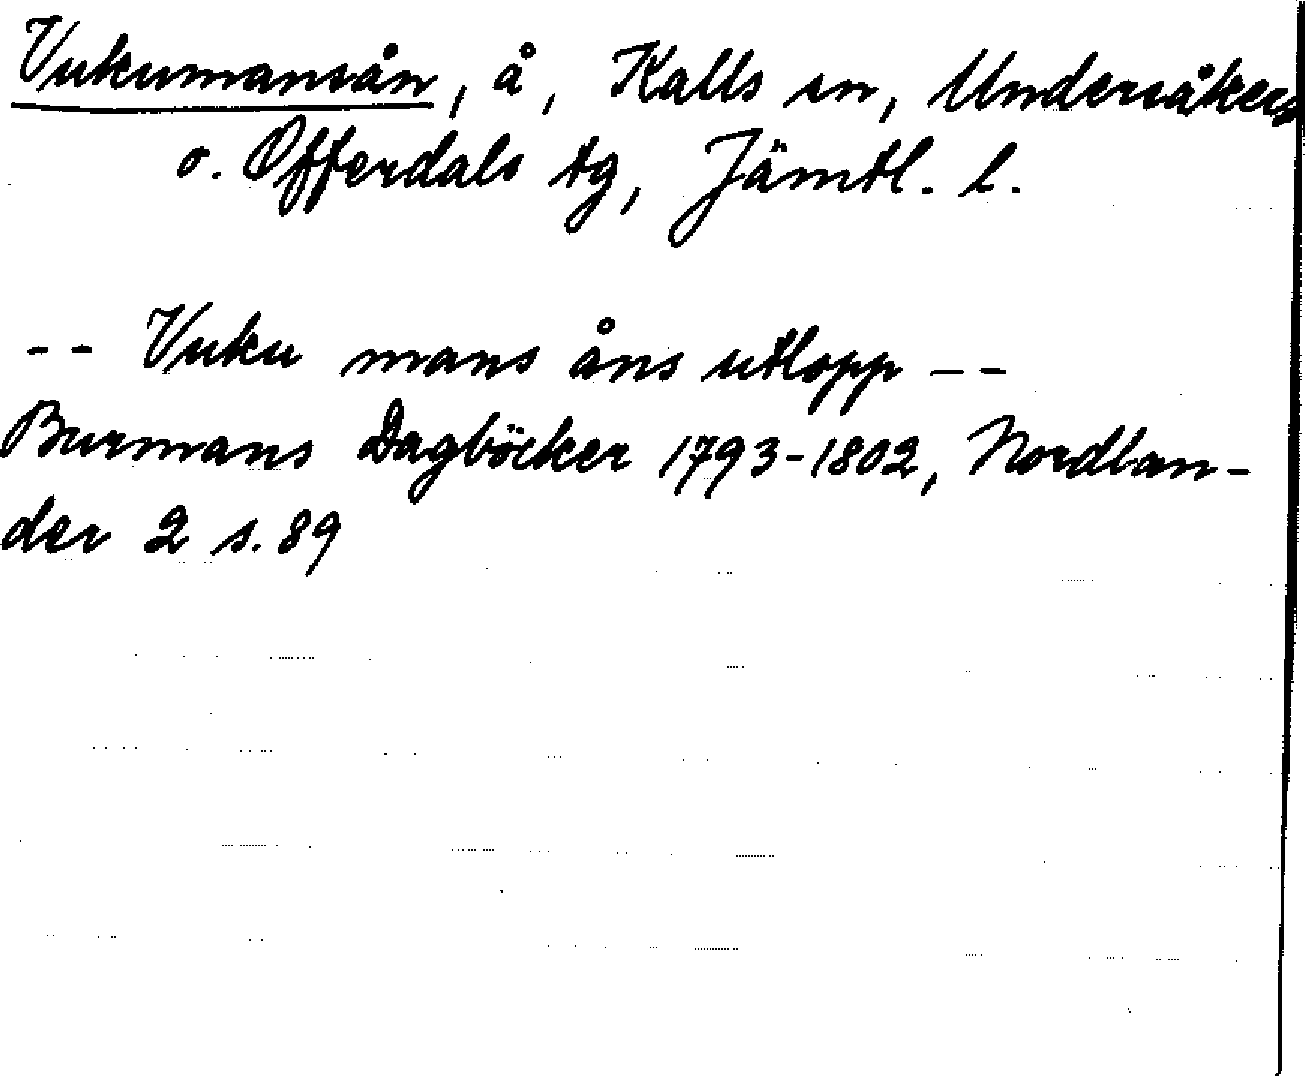 Vukumansån, å, Kalls sn, Undersåkers
o. Offerdals tg, Jämtl. l.
-- Vuku mans åns utlopp --
Burmans Dagböcker 1793-1802, Nordlan-
der 2 s. 89